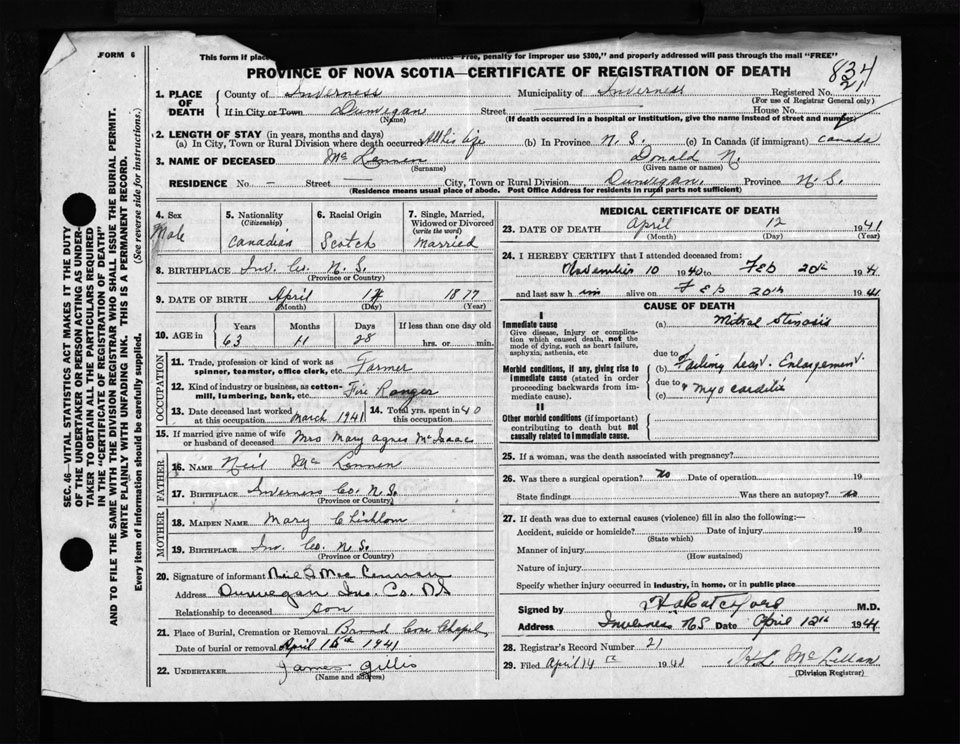 FORM 6
This form if place Free, penalty for improper use $300," and properly addressed will pass through the mail "FREE"
PROVINCE OF NOVA SCOTIA—CERTIFICATE OF REGISTRATION OF DEATH
834
21
1. PLACE OF DEATH
County of Inverness Municipality of Inverness Registered No.
(For use of Registrar General only)
If in City or Town Dunvegan Street House No.
(Name) (If death occurred in a hospital or institution, give the name instead of street and number)
2. LENGTH OF STAY (in years, months and days)
(a) In City, Town or Rural Division where death occurred All his life (b) In Province N. S. (c) In Canada (if immigrant) Canada
3. NAME OF DECEASED Mc Lennen Donald N.
(Surname) (Given name or names)
RESIDENCE No. — Street — City, Town or Rural Division Dunvegan. Province N. S.
(Residence means usual place of abode. Post Office Address for residents in rural parts not sufficient)
4. Sex
Male
5. Nationality
(Citizenship)
Canadian
6. Racial Origin
Scotch
7. Single, Married, Widowed or Divorced
(write the word)
Married
8. BIRTHPLACE Inv. Co. N. S.
(Province or Country)
9. DATE OF BIRTH April 14 1877
(Month) (Day) (Year)
10. AGE in
Years Months Days If less than one day old
63 11 28 hrs. or min.
OCCUPATION
11. Trade, profession or kind of work as spinner, teamster, office clerk, etc. Farmer
12. Kind of industry or business, as cotton-mill, lumbering, bank, etc. Fire Ranger
13. Date deceased last worked at this occupation March 1941 14. Total yrs. spent in this occupation 40
15. If married give name of wife or husband of deceased Mrs Mary Agnes McIsaac
FATHER
16. NAME Neil Mc Lennen
17. BIRTHPLACE Inverness Co. N. S.
(Province or Country)
MOTHER
18. MAIDEN NAME Mary Chisholm
19. BIRTHPLACE Inv. Co. N. S.
(Province or Country)
20. Signature of informant Neil D Mac Lennan
Address Dunvegan Inv. Co. NS
Relationship to deceased son
21. Place of Burial, Cremation or Removal Broad Cove Chapel
Date of burial or removal April 15th 1941
22. UNDERTAKER James Gillis
(Name and address)
MEDICAL CERTIFICATE OF DEATH
23. DATE OF DEATH April 12 1941
(Month) (Day) (Year)
24. I HEREBY CERTIFY that I attended deceased from:
November 10 1940 to Feb 20th 1941
and last saw him alive on Feb 20th 1941
CAUSE OF DEATH
I
Immediate cause
Give disease, injury or complication which caused death, not the mode of dying, such as heart failure, asphyxia, asthenia, etc
(a) Mitral Stenosis
due to
Morbid conditions, if any, giving rise to immediate cause (stated in order proceeding backwards from immediate cause).
(b) Failing heart. Enlargement.
due to
(c) & Myocarditis
II
Other morbid conditions (if important) contributing to death but not causally related to immediate cause.
25. If a woman, was the death associated with pregnancy?
26. Was there a surgical operation? no Date of operation 19
State findings Was there an autopsy? no
27. If death was due to external causes (violence) fill in also the following:—
Accident, suicide or homicide? Date of injury 19
(State which)
Manner of injury
(How sustained)
Nature of injury
Specify whether injury occurred in industry, in home, or in public place
Signed by M.D.
Address Inverness NS Date April 12th 1941
28. Registrar's Record Number 21
29. Filed April 14th 1941 McLellan
(Division Registrar)
SEC. 46—VITAL STATISTICS ACT MAKES IT THE DUTY
OF THE UNDERTAKER OR PERSON ACTING AS UNDER-
TAKER TO OBTAIN ALL THE PARTICULARS REQUIRED
IN THE "CERTIFICATE OF REGISTRATION OF DEATH"
AND TO FILE THE SAME WITH THE DIVISION REGISTRAR WHO SHALL ISSUE THE BURIAL PERMIT.
WRITE PLAINLY WITH UNFADING INK. THIS IS A PERMANENT RECORD.
Every item of information should be carefully supplied. (See reverse side for instructions.)